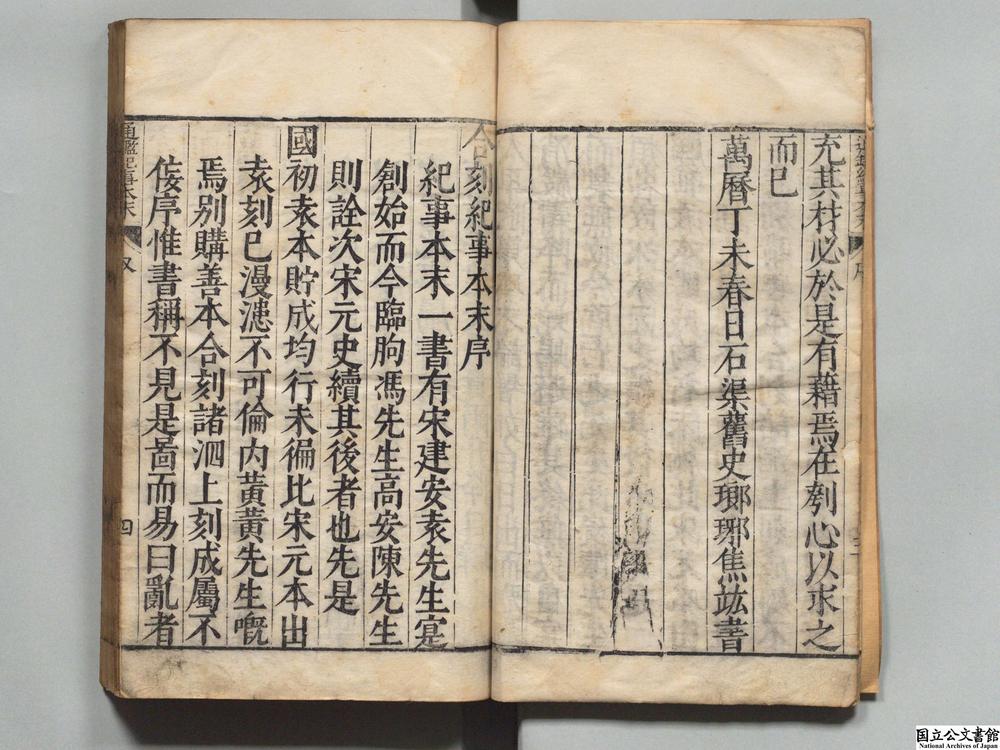 充其材必於是有藉焉在刳心以求之
而已
萬曆丁未春日石渠舊史瑯琊焦竑書
合刻紀事本末序
紀事本末一書有宋建安袁先生寔
創始而今臨朐馮先生高安陳先生
則詮次宋元史續其後者也先是
國初袁本貯成均行未徧比宋元本出
袁刻已漫漶不可倫內黃黃先生嘅
焉別購善本合刻諸泗上刻成屬不
佞序惟書稱不見是啚而易曰亂者
通鑑紀事本末
四
国立公文書館
National Archives of Japan